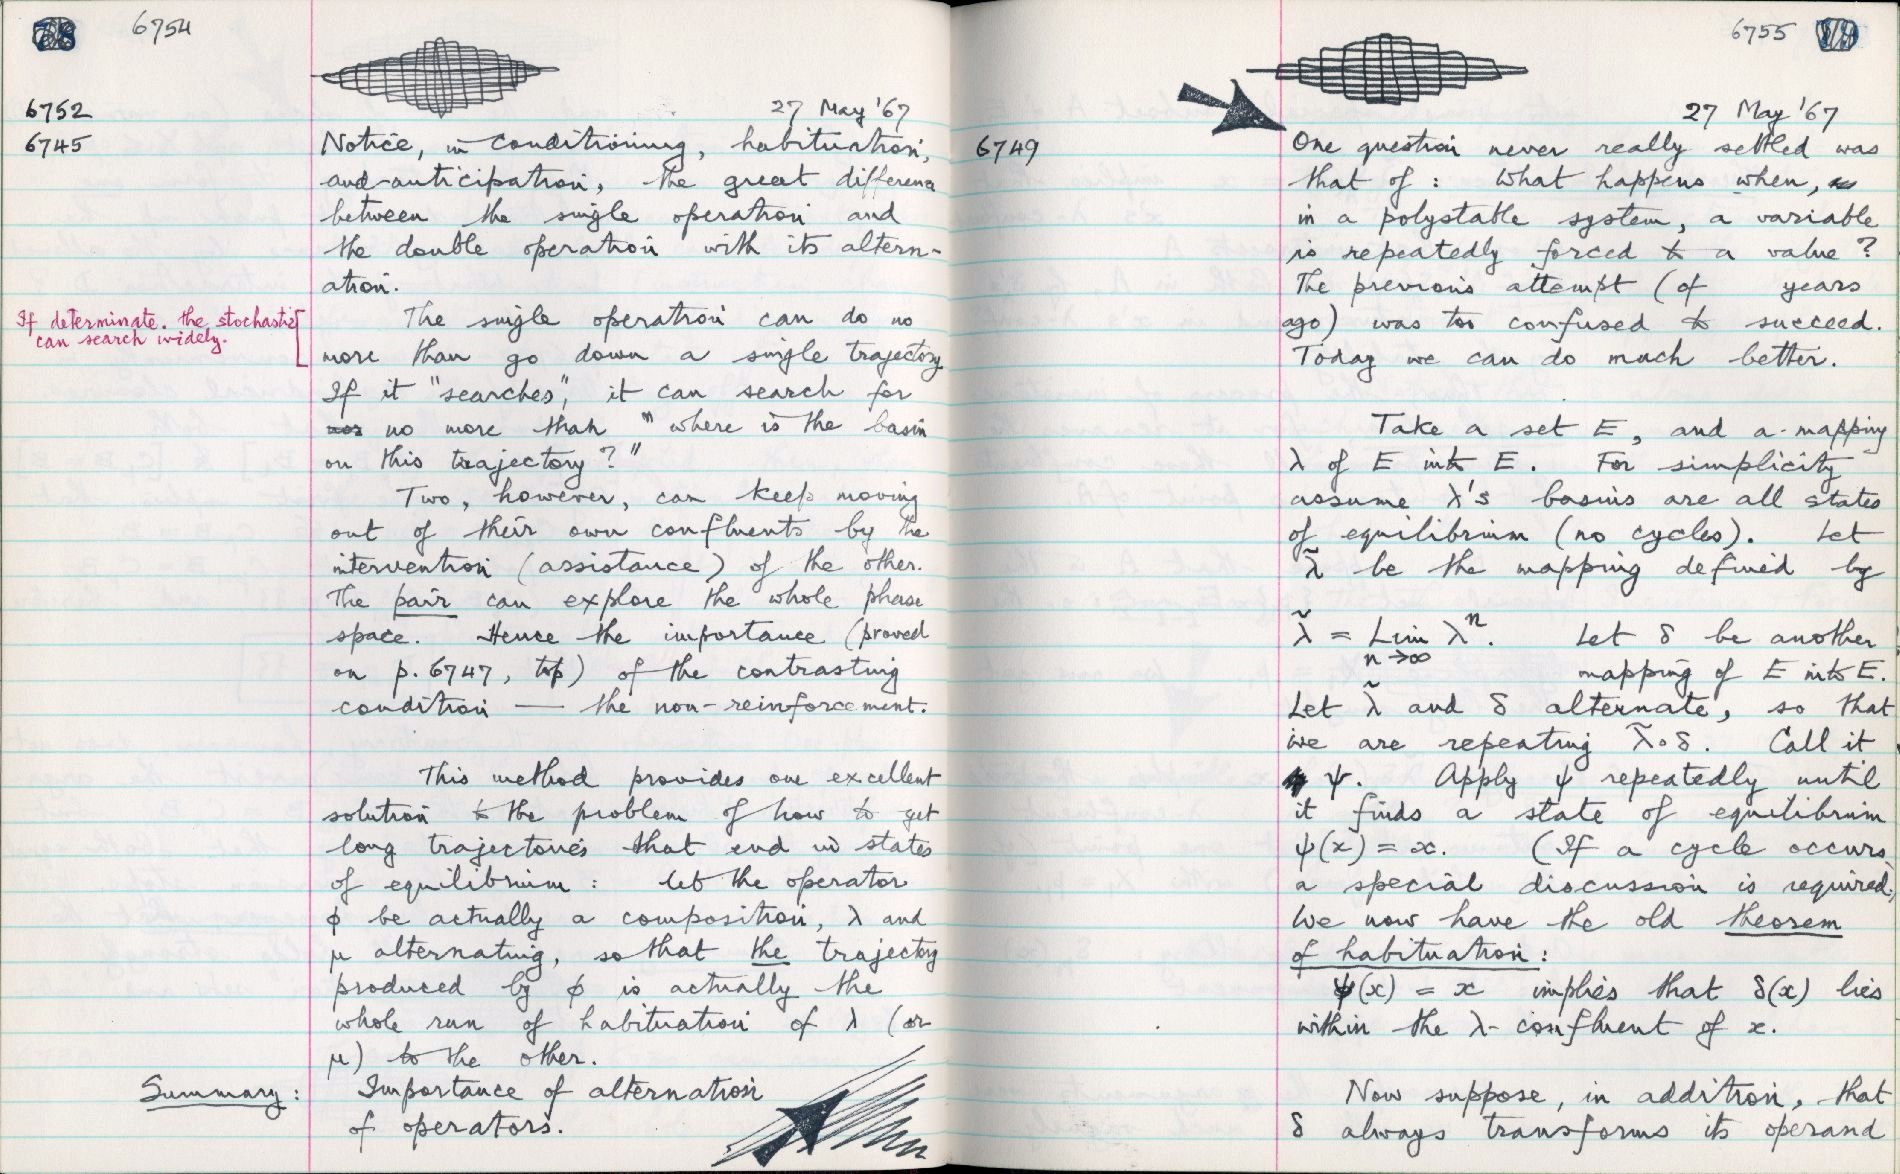 78 6754
6752
27 May '67
6745
Notice, in conditioning, habituation,
and anticipation, the great difference
between the single operation and
the double operation with its altern-
ation.
If determinate. the stochastic
can search widely.
The single operation can do no
more than go down a single trajectory
If it "searches", it can search for
no more than "where is the basin
on this trajectory?"
Two, however, can keep moving
out of their own confluents by the
intervention (assistance) of the other.
The pair can explore the whole phase
space. Hence the importance (proved
on p. 6747, top) of the contrasting
condition — the non-reinforcement.
This method provides one excellent
solution to the problem of how to get
long trajectories that end in states
of equilibrium: let the operator
φ be actually a composition, λ and
μ alternating, so that the trajectory
produced by φ is actually the
whole run of habituation of λ (or
μ) to the other.
Summary: Importance of alternation
of operators.
6755 79
27 May '67
6749
One question never really settled was
that of: What happens when,
in a polystable system, a variable
is repeatedly forced to a value?
The previous attempt (of years
ago) was too confused to succeed.
Today we can do much better.
Take a set E, and a mapping
λ of E into E. For simplicity
assume λ's basins are all states
of equilibrium (no cycles). Let
λ̃ be the mapping defined by
λ̃ = Lim λⁿ. Let δ be another
n→∞ mapping of E into E.
Let λ̃ and δ alternate, so that
we are repeating λ̃∘δ. Call it
ψ. Apply ψ repeatedly until
it finds a state of equilibrium
ψ(x) = x. (If a cycle occurs
a special discussion is required)
We now have the old theorem
of habituation:
ψ(x) = x implies that δ(x) lies
within the λ-confluent of x.
Now suppose, in addition, that
δ always transforms its operand